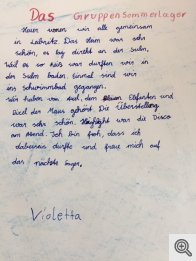 Das Gruppensommerlager
Heuer waren wir alle gemeinsam
in Leibnitz. Das Haus war sehr
schön, es lag direkt an der Sulm.
Weil es so heiß war durften wir in
der Sulm baden. Einmal sind wir
ins Schwimmbad gegangen.
Wir haben von Axel, dem Elefanten und
Lied der Maus gehört. Die Überstellung
war sehr schön. Highlight war die Disco
am Abend. Ich bin froh, dass ich
dabeisein durfte und freue mich auf
das nächste Lager.
Violetta